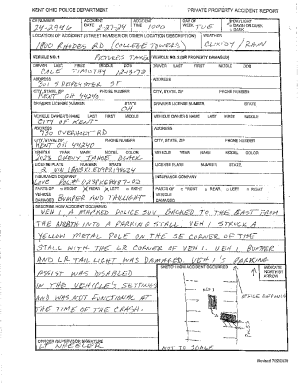 KENT OHIO POLICE DEPARTMENT PRIVATE PROPERTY ACCIDENT REPORT
CR NUMBER ACCIDENT DATE ACCIDENT TIME DAY OF WEEK
24-2946 2-27-24 1000 TUE
LOCATION OF ACCIDENT (STREET NUMBER OR OTHER LOCATION DESCRIPTION) WEATHER
1800 RHODES RD (COLLEGE TOWERS) CLOUDY / RAIN
VEHICLE NO.1 PICTURES TAKEN VEHICLE NO. 2 (OR PROPERTY DAMAGED)
DRIVER LAST FIRST MIDDLE DOB DRIVER LAST FIRST MIDDLE DOB
COLE TIMOTHY
ADDRESS ADDRESS
301 S DEPEYSTER ST
CITY, STATE, ZIP PHONE NUMBER CITY, STATE, ZIP PHONE NUMBER
KENT OH 44240
DRIVER'S LICENSE NUMBER STATE DRIVER'S LICENSE NUMBER STATE
OH
VEHICLE OWNER'S NAME LAST FIRST MIDDLE VEHICLE OWNER'S NAME LAST FIRST MIDDLE
CITY OF KENT
ADDRESS ADDRESS
930 OVERHOLT RD
CITY, STATE, ZIP PHONE NUMBER CITY, STATE, ZIP PHONE NUMBER
KENT OH 44240
VEHICLE YEAR MAKE MODEL COLOR VEHICLE YEAR MAKE MODEL COLOR
2023 CHEVY TAHOE BLACK
LICENSE PLATE NUMBER STATE LICENSE PLATE NUMBER STATE
INSURANCE COMPANY INSURANCE COMPANY
PARTS OF VEHICLE DAMAGED FRONT REAR LEFT RIGHT PARTS OF VEHICLE DAMAGED FRONT REAR LEFT RIGHT
BUMPER AND TAILLIGHT
DESCRIBE HOW ACCIDENT OCCURRED
VEH 1, A MARKED POLICE SUV, BACKED TO THE EAST FROM
THE NORTH INTO A PARKING STALL. VEH 1 STRUCK A
YELLOW METAL POLE ON THE SE CORNER OF THE
STALL WITH THE LR CORNER OF VEH 1. VEH 1 BUMPER
AND LR TAILLIGHT WAS DAMAGED. VEH 1'S PARKING
ASSIST WAS DISABLED
IN THE VEHICLE'S SETTINGS
AND WAS NOT FUNCTIONAL AT
THE TIME OF THE CRASH.
SKETCH HOW ACCIDENT OCCURRED
INDICATE NORTH BY ARROW
VEH 1
POLE
NOT TO SCALE
LT WHEELER